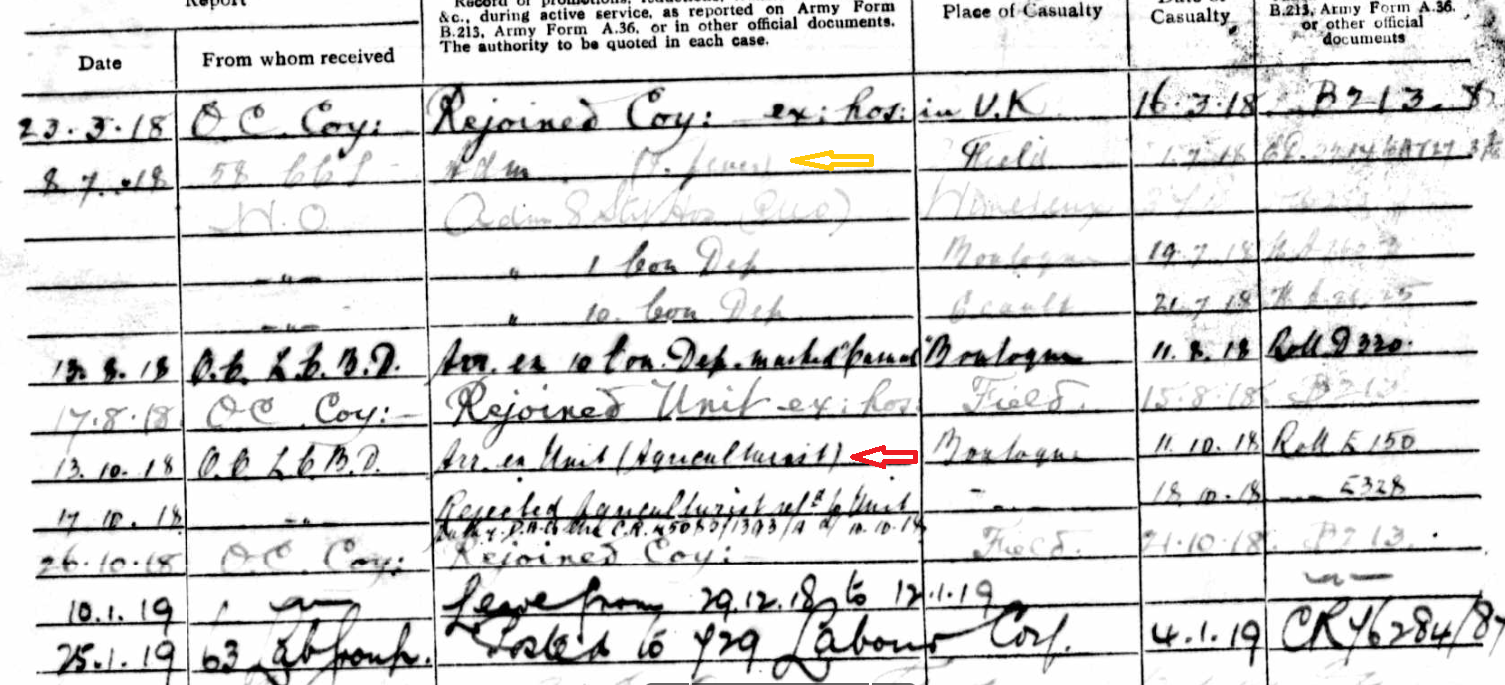 Report
Record of promotions, reductions,
&c., during active service, as reported on Army Form
B.213, Army Form A.36, or in other official documents.
The authority to be quoted in each case.
Place of Casualty
Casualty
B.213, Army Form A.36,
or other official
documents
Date
From whom received
23.3.18 O C. Coy: Rejoined Coy: ex: hos: in U.K 16.3.18 B213.
8.7.18 58 CCS Adm Field 1.7.18
H.O. Adm 8 Sty Hos
" 1 Con Dep Boulogne 19.7.18
" 10 Con Dep Ecault 21.7.18
13.8.18 O.C. L.C.B.D. Arr. ex 10 Con. Dep. marked Boulogne 11.8.18 Roll D320.
17.8.18 OC Coy: Rejoined Unit ex: hos Field. 15.8.18 B213
13.10.18 O.C L C B.D. Arr. ex Unit (Agriculturist) Boulogne 11.10.18 Roll E150
17 10.18 -"- Rejected Agriculturist to Unit -"- 18 10.18 E328
C.R. 10.10.18
26.10.18 O.C. Coy: Rejoined Coy: Field. 21.10.18 B213.
10.1.19 Leave from 29.12.18 to 12.1.19
25.1.19 63 Lab Group. Posted to 729 Labour Corp. 4.1.19